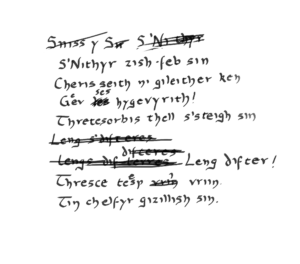 Sniss y Sw S'Nithyr
S'Nithyr zish-feb sin
Cheris seith ni gileither ken
Gêr ses hygevyrith!
Thretesorbis thell s'steigh sin
Leng s'difteres
difteres
Lengs Leng difter!
Thresce tesn vriin.
Tin chelfyr gizillish sin.